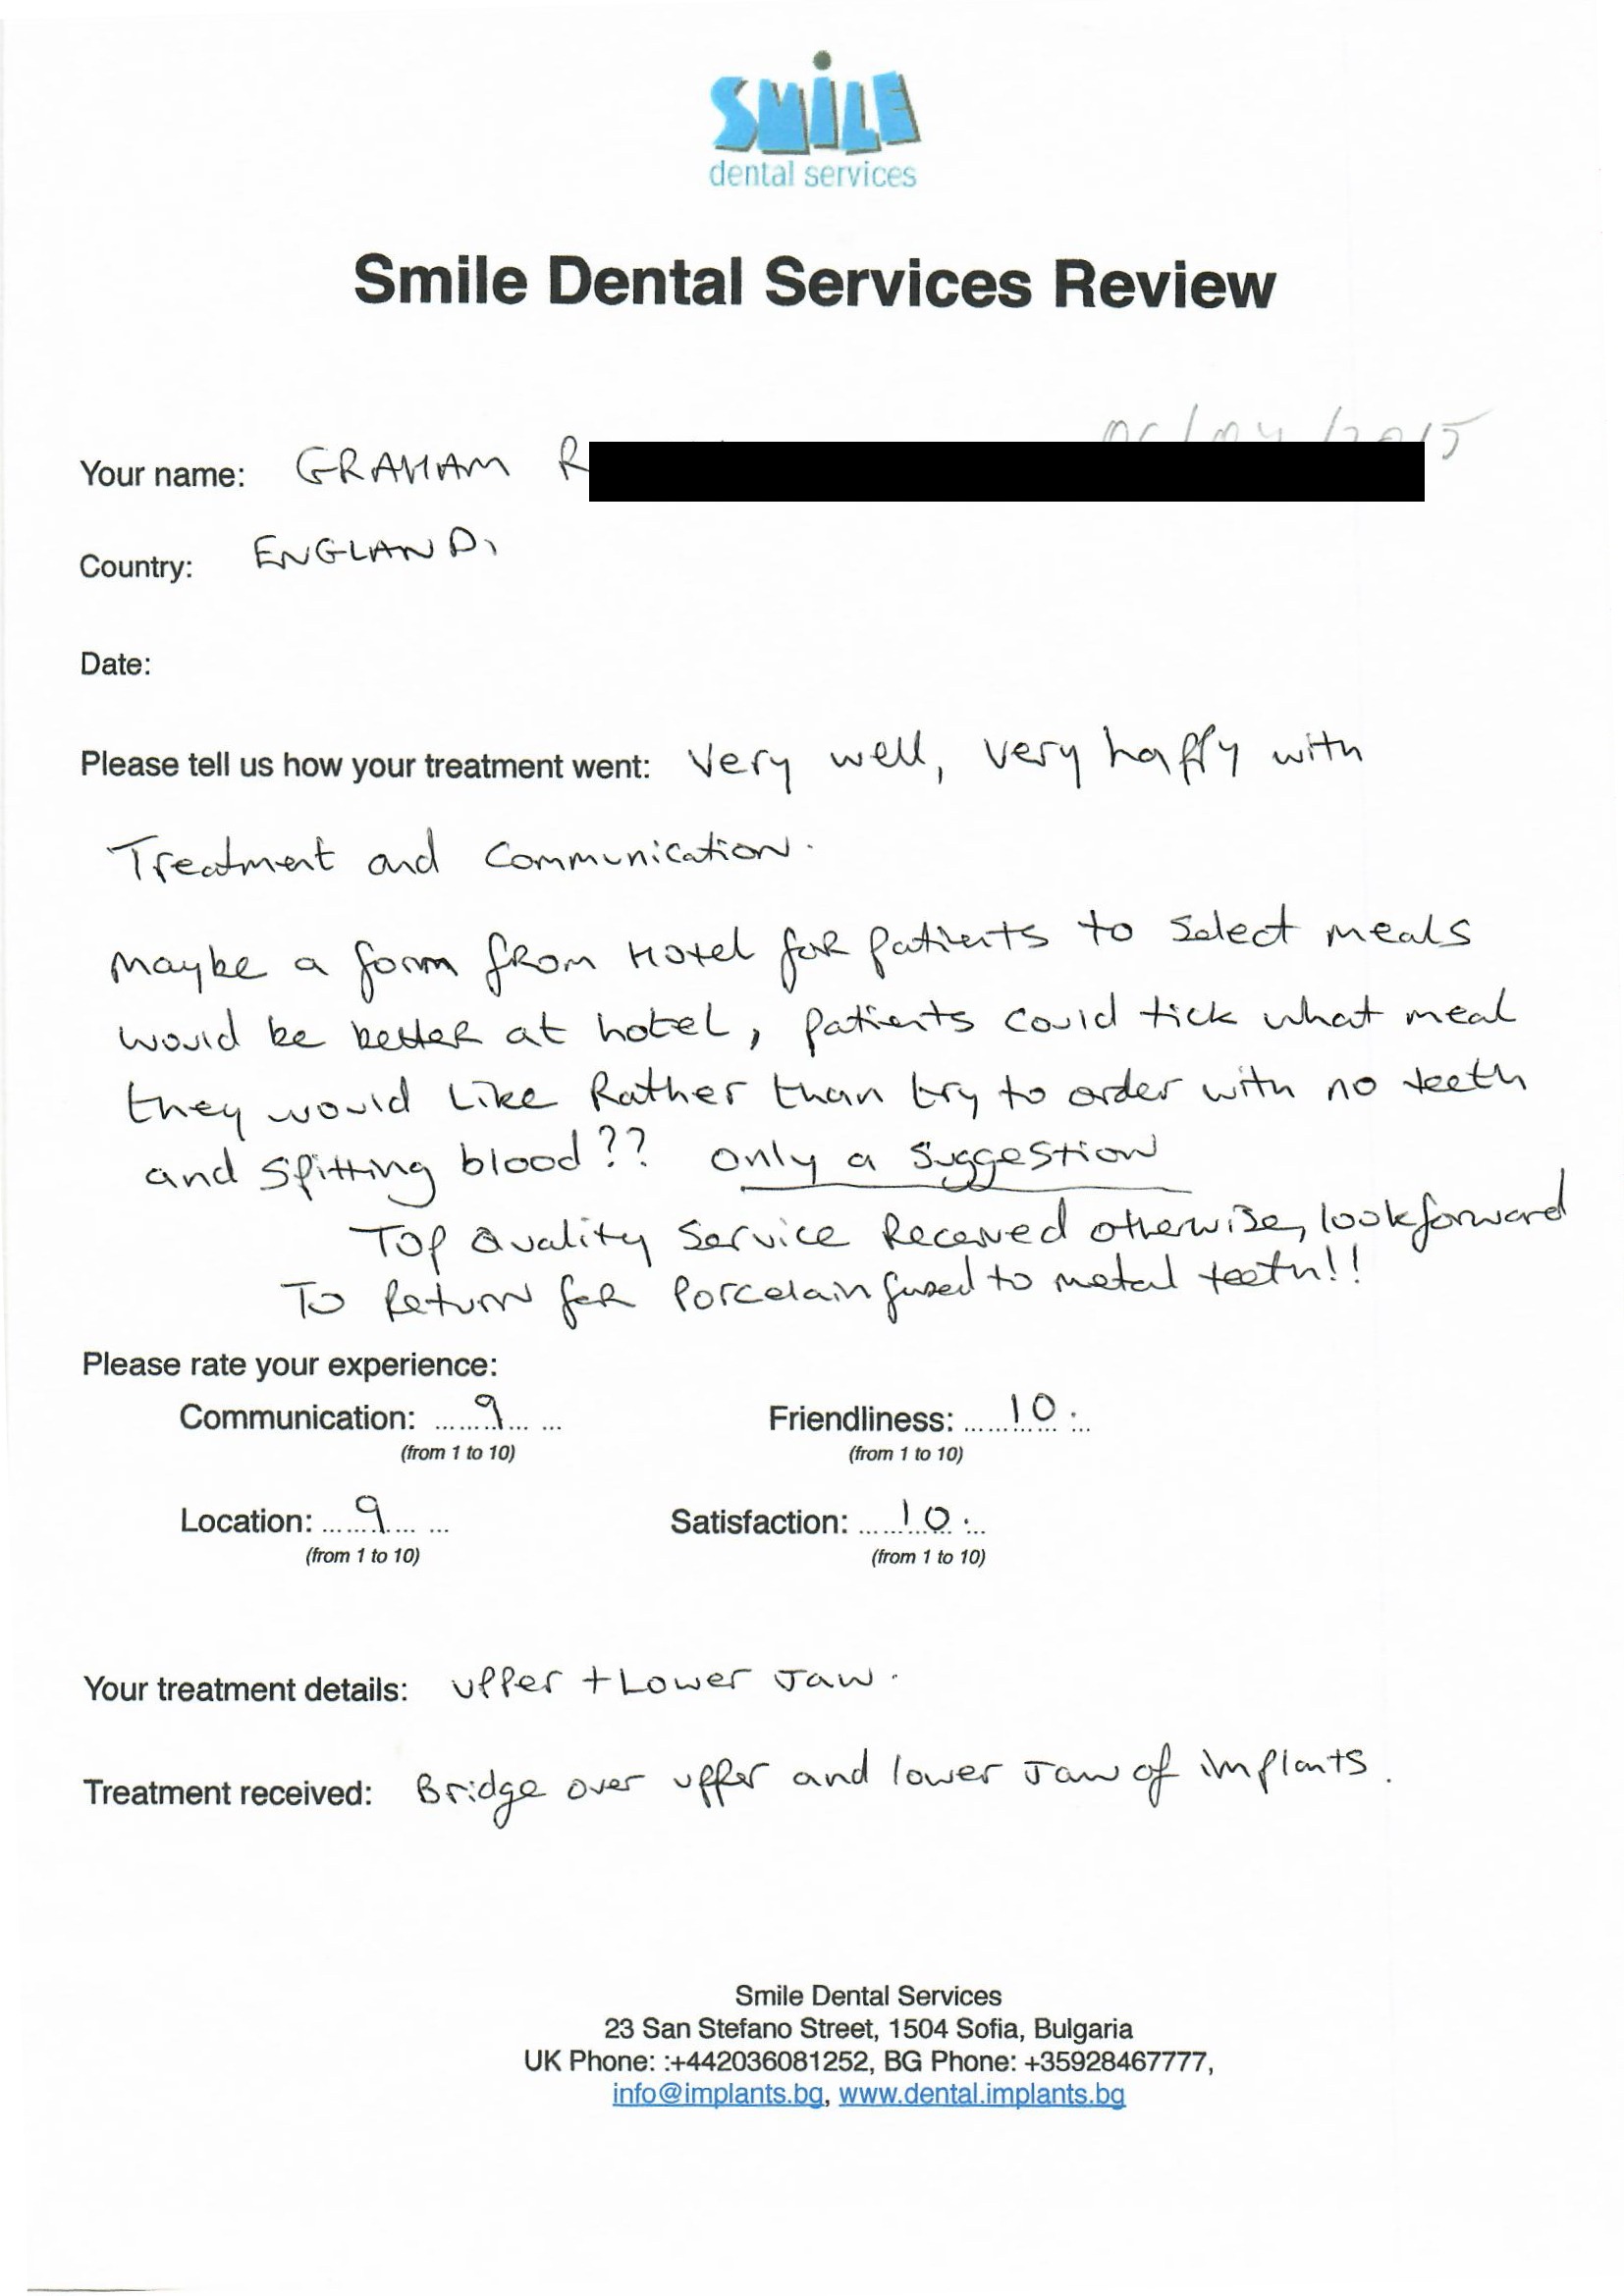 SMiLE
dental services
Smile Dental Services Review
Your name: GRAHAM R
Country: ENGLAND,
Date:
Please tell us how your treatment went: Very well, very happy with
Treatment and Communication.
Maybe a form from Hotel for patients to select meals
would be better at hotel, patients could tick what meal
they would like Rather than try to order with no teeth
and spitting blood?? Only a suggestion
Top Quality Service Received otherwise, look forward
To Return for Porcelain fused to metal teeth!!
Please rate your experience:
Communication: ...... 9 ... ... Friendliness: ...... 10. ...
(from 1 to 10) (from 1 to 10)
Location: ...... 9 ... ... Satisfaction: ...... 10. ...
(from 1 to 10) (from 1 to 10)
Your treatment details: Upper + Lower Jaw.
Treatment received: Bridge over upper and lower Jaw of implants.
Smile Dental Services
23 San Stefano Street, 1504 Sofia, Bulgaria
UK Phone: :+442036081252, BG Phone: +35928467777,
info@implants.bg, www.dental.implants.bg